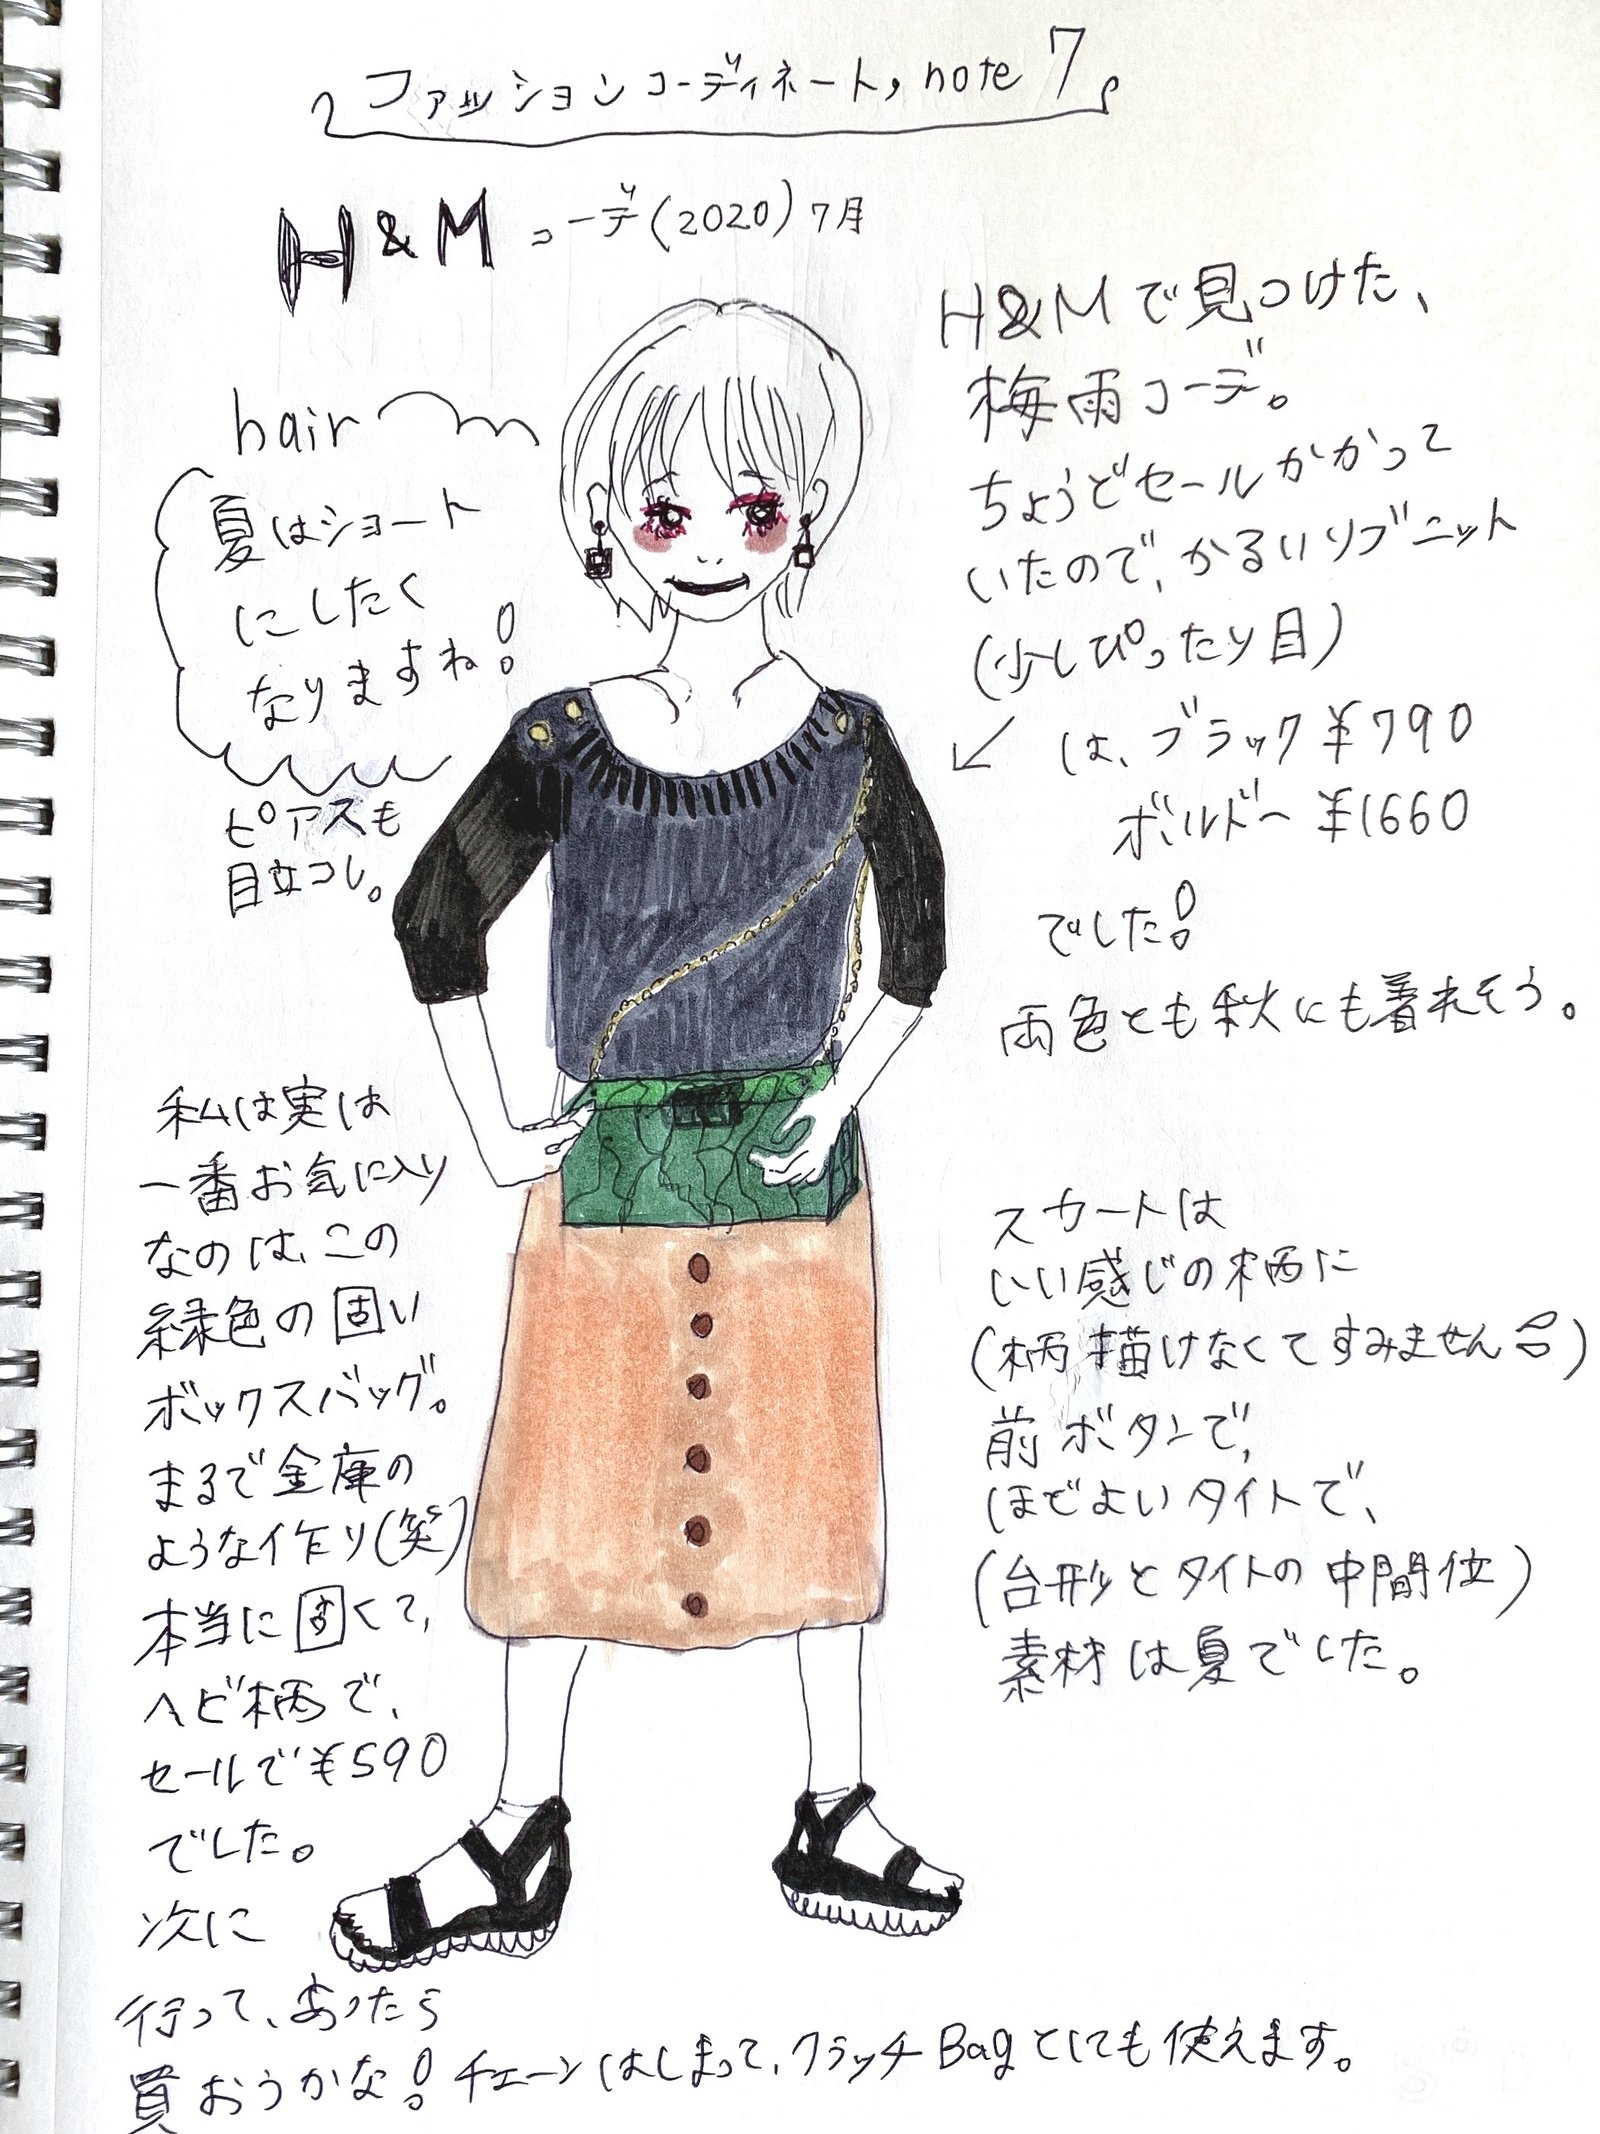 ファッションコーディネート, note 7
H&M コーデ(2020) 7月
hair
夏はショート
にしたく
なりますね!
ピアスも
目立つし。
H&Mで見つけた、
梅雨コーデ。
ちょうどセールかかって
いたので、かるいリブニット
(少しぴったり目)
は、ブラック¥790
ボルドー ¥1660
でした!
両色とも秋にも着れそう。
私は実は
一番お気に入り
なのは、この
緑色の固い
ボックスバッグ。
まるで金庫の
ような作り(笑)
本当に固くて、
ヘビ柄で、
セールで¥590
でした。
次に
行って、あったら
買おうかな! チェーンはしまって、クラッチBagとしても使えます。
スカートは
いい感じの柄に
(柄描けなくてすみません)
前ボタンで、
ほどよいタイトで、
(台形とタイトの中間位)
素材は夏でした。